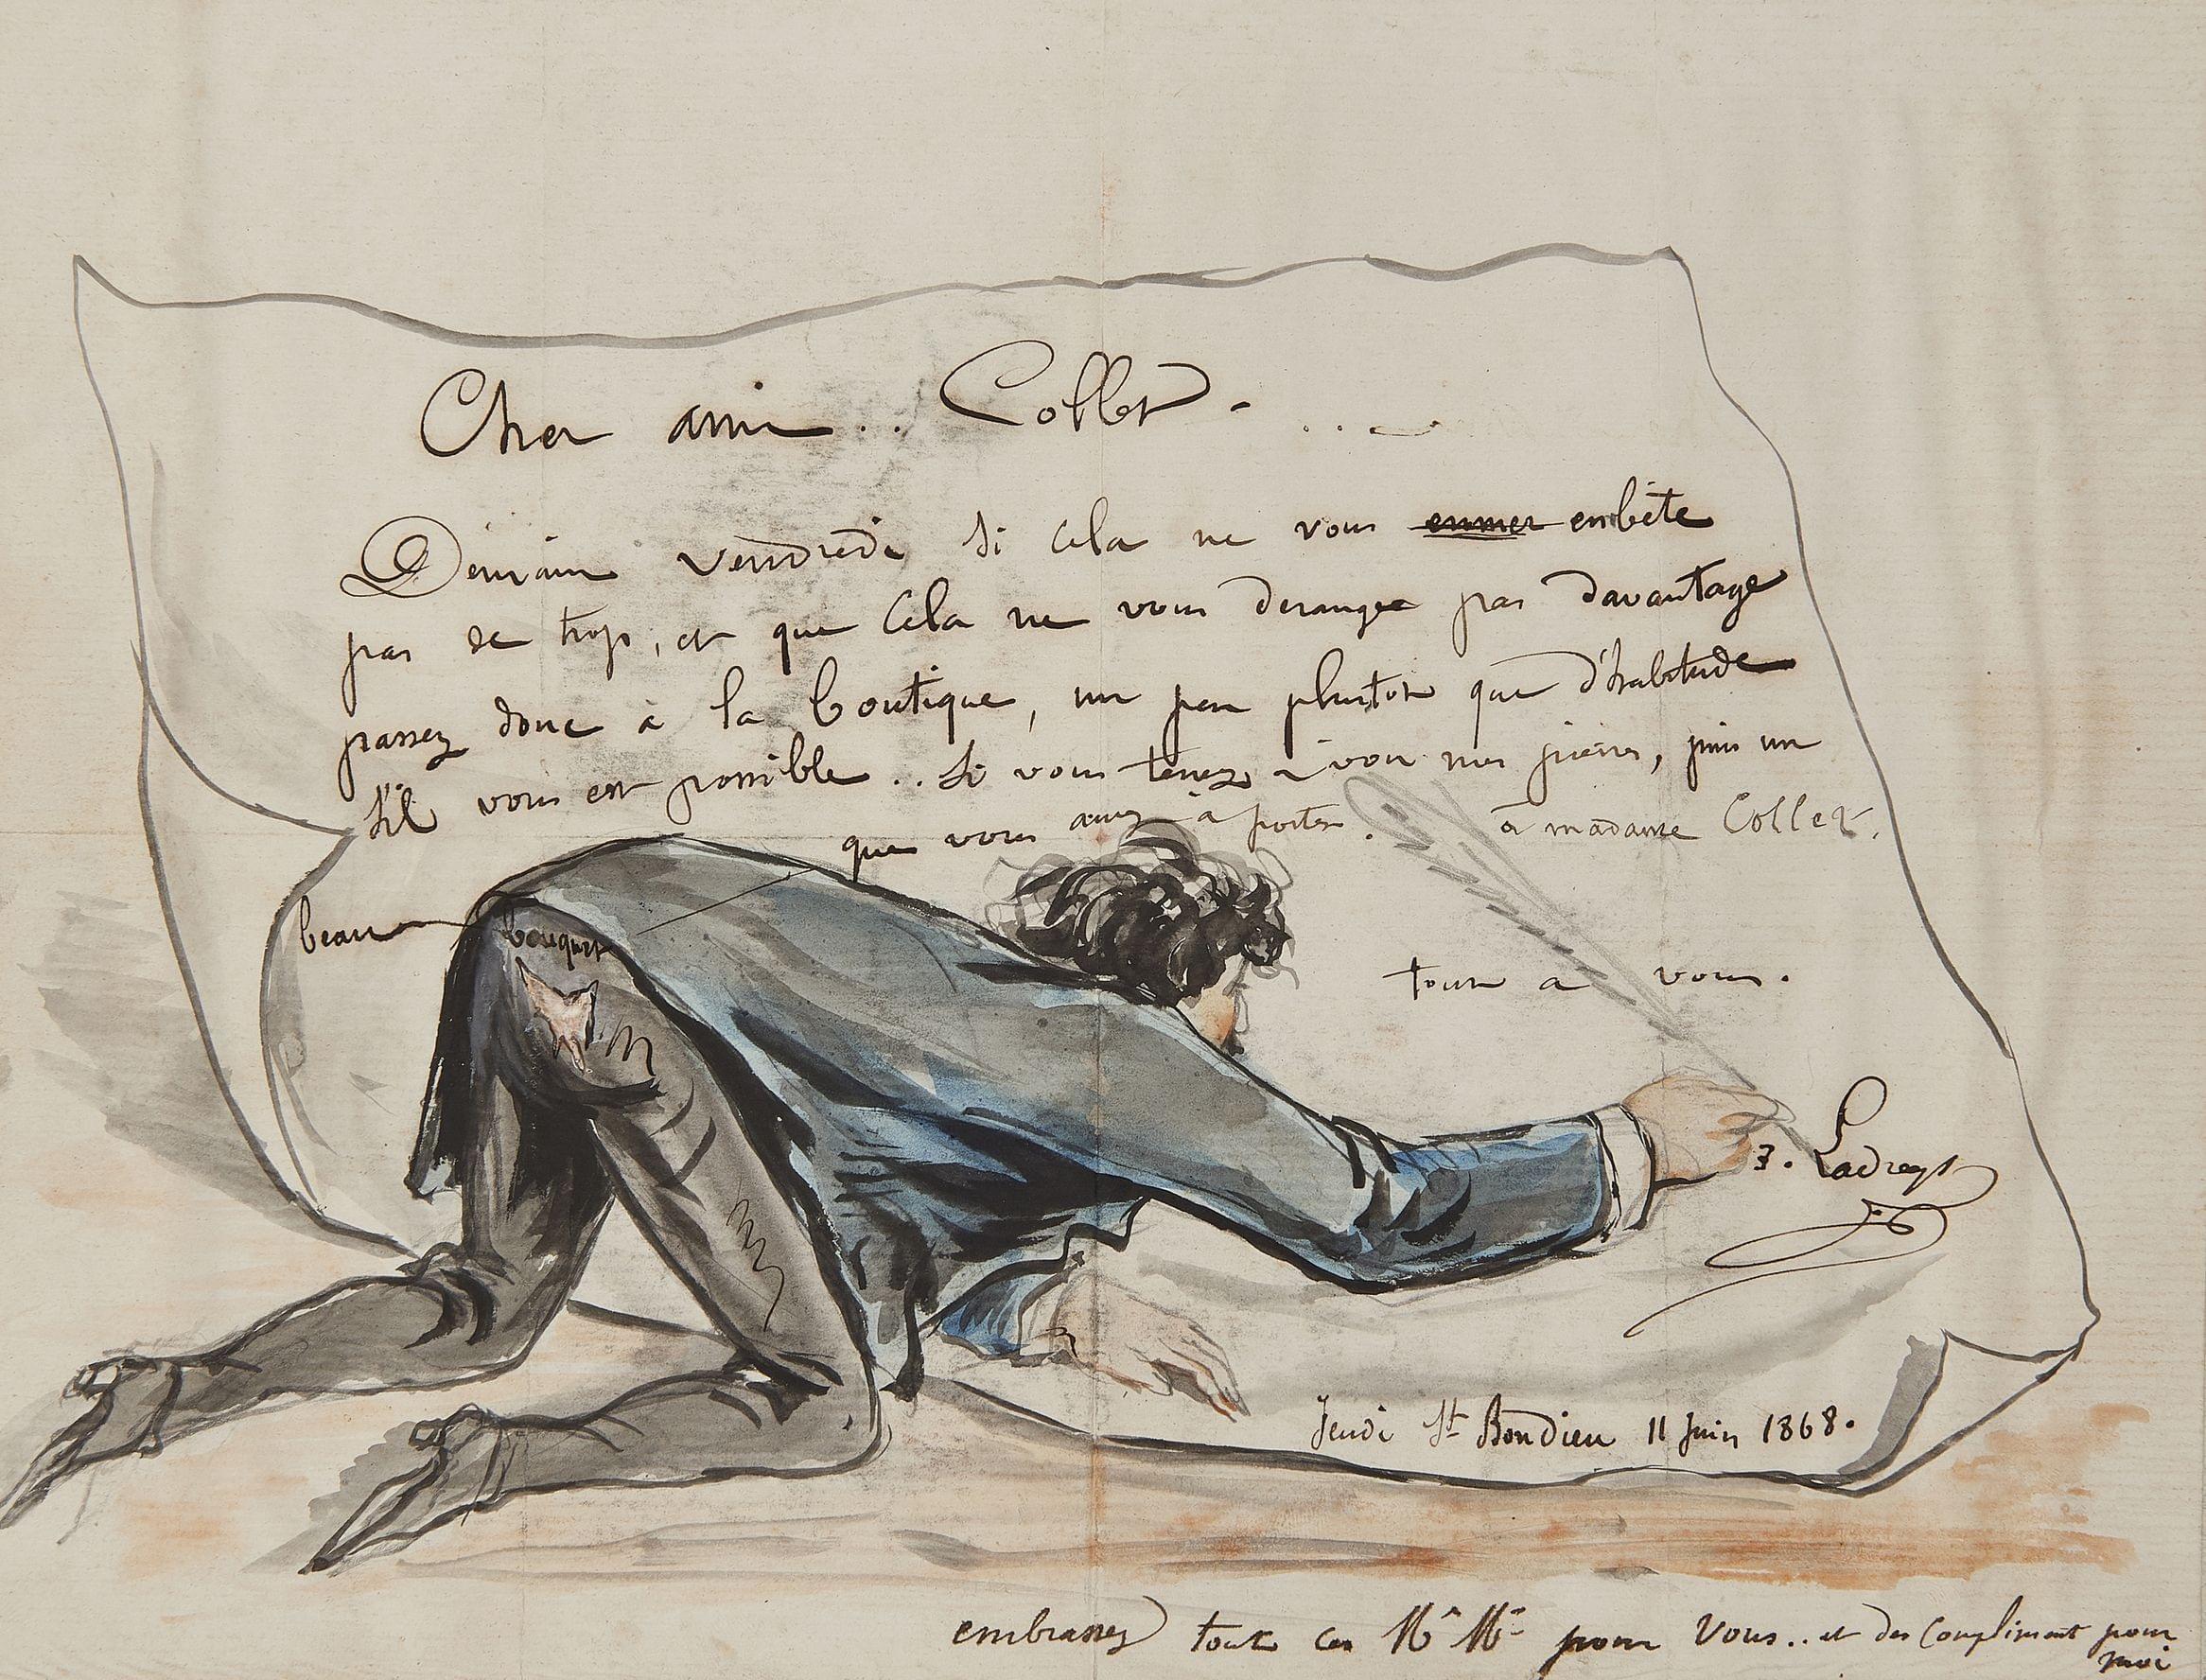 Cher ami .. Collet - ...
Demain vendredi si cela ne vous enmer embête
pas de trop, et que cela ne vous derange pas davantage
passez donc à la boutique, un peu plustot que d'habitude
s'il vous est possible .. si vous tenez à voir mes pieuves, puis un
beau bouquet que vous aurez à porter. à madame Collet.
tout a vous.
J. Ladreyt
Jeudi St Bondieu 11 Juin 1868.
embrassez toute ces pour vous.. et des compliment pour
moi